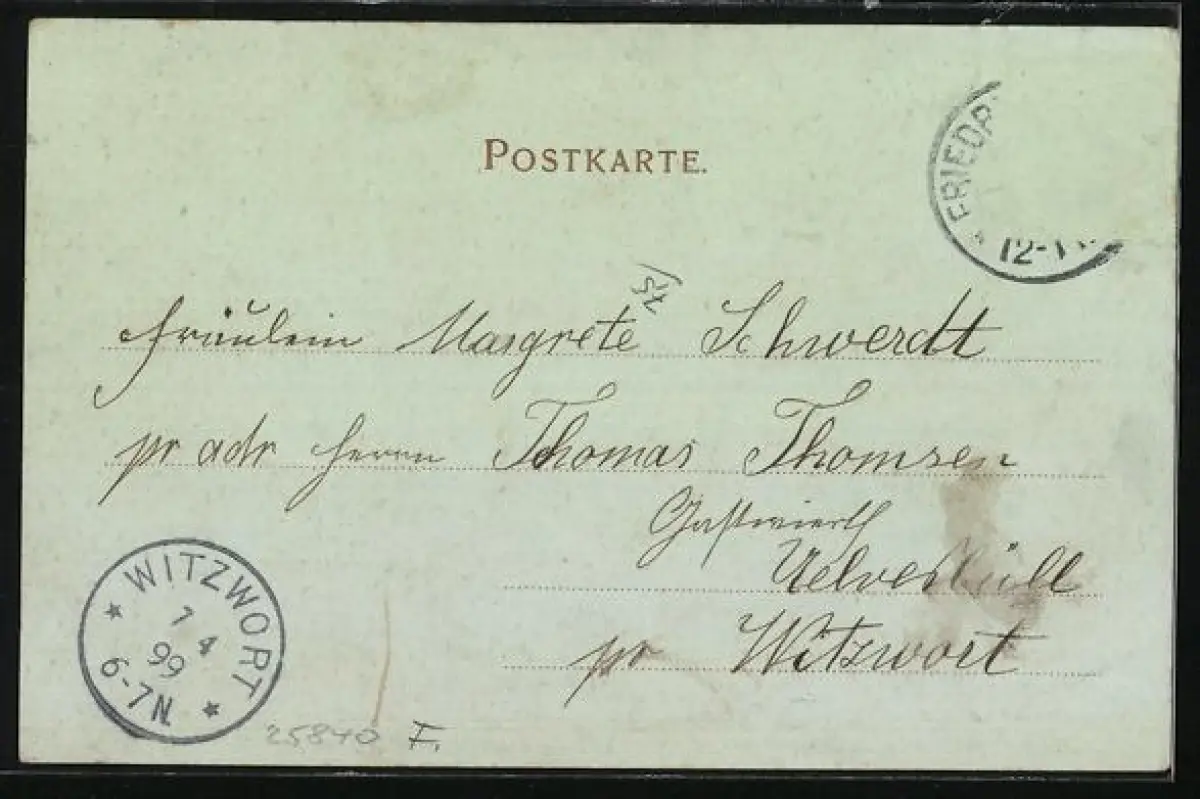 POSTKARTE.
FRIEDR
12-1
Fräulein Margrete Schwerdt
pr adr Herrn Thomas Thomsen
Gastwirth
Uelvesbüll
pr Witzwort
* WITZWORT *
1 4
99
6-7N
25840 F.